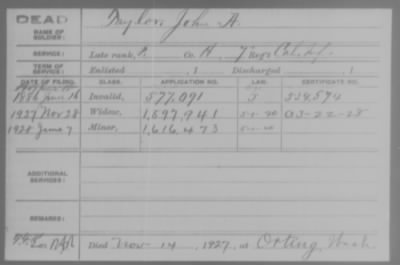 DEAD
NAME OF SOLDIER: Taylor, John A.
SERVICE: Late rank, P. Co. A, 7 Reg't Cal. Inf.
TERM OF SERVICE: Enlisted , 1 Discharged , 1
DATE OF FILING. CLASS. APPLICATION NO. CERTIFICATE NO.
1886 June 16 Invalid, 577,091
1927 Nov 28 Widow, 1,597,941 03-22-28
1928 June 7 Minor, 1,616,473
ADDITIONAL SERVICES:
REMARKS:
Died Nov. 14, 1927, at Orting, Wash.